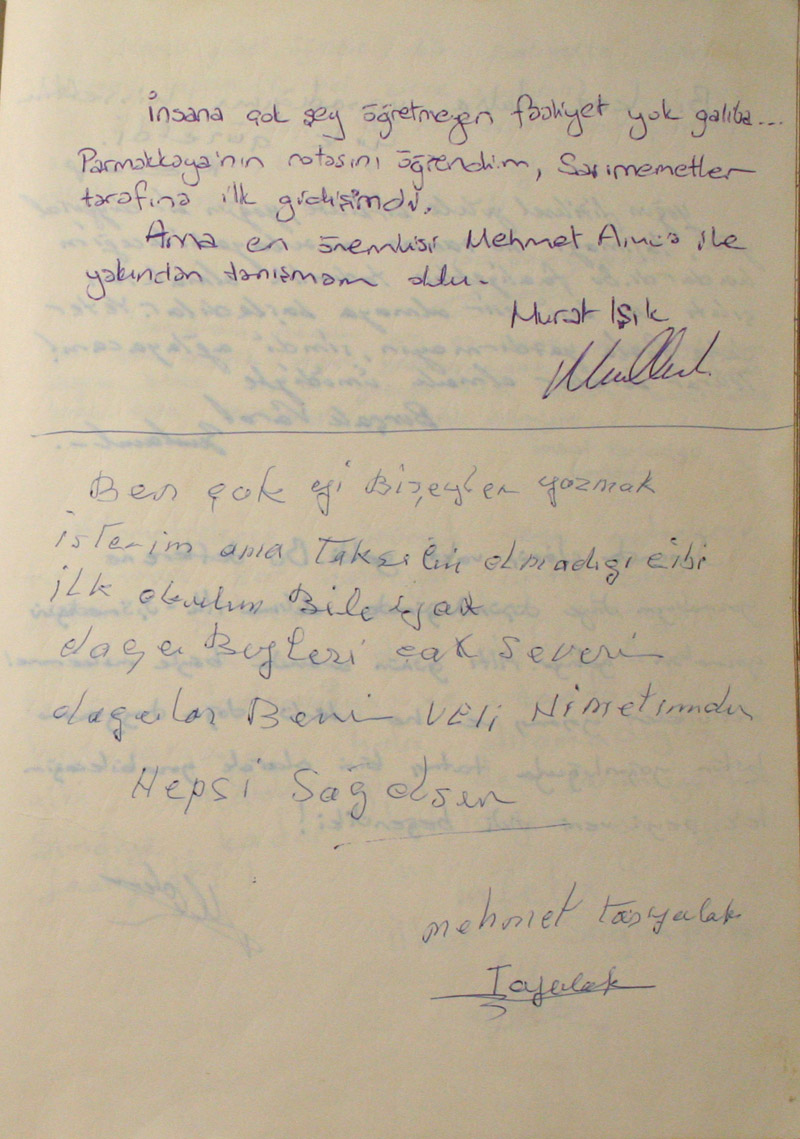 İnsana çok şey öğretmeyen faaliyet yok galiba...
Parmakkaya'nın rotasını öğrendim, Sarımemetler
tarafına ilk gidişimdi.
Ama en önemlisi Mehmet Amca ile
yakından tanışmam oldu.
Murat Işık
Ben çok eyi Bişeyler yazmak
isterim ama Taksilim olmadığı cibi
ilk okulum Bile yok
dağcı Beyleri çok severim
dağcılar Benim Veli Nimetimdir
Hepsi Sağ olsun
mehmet